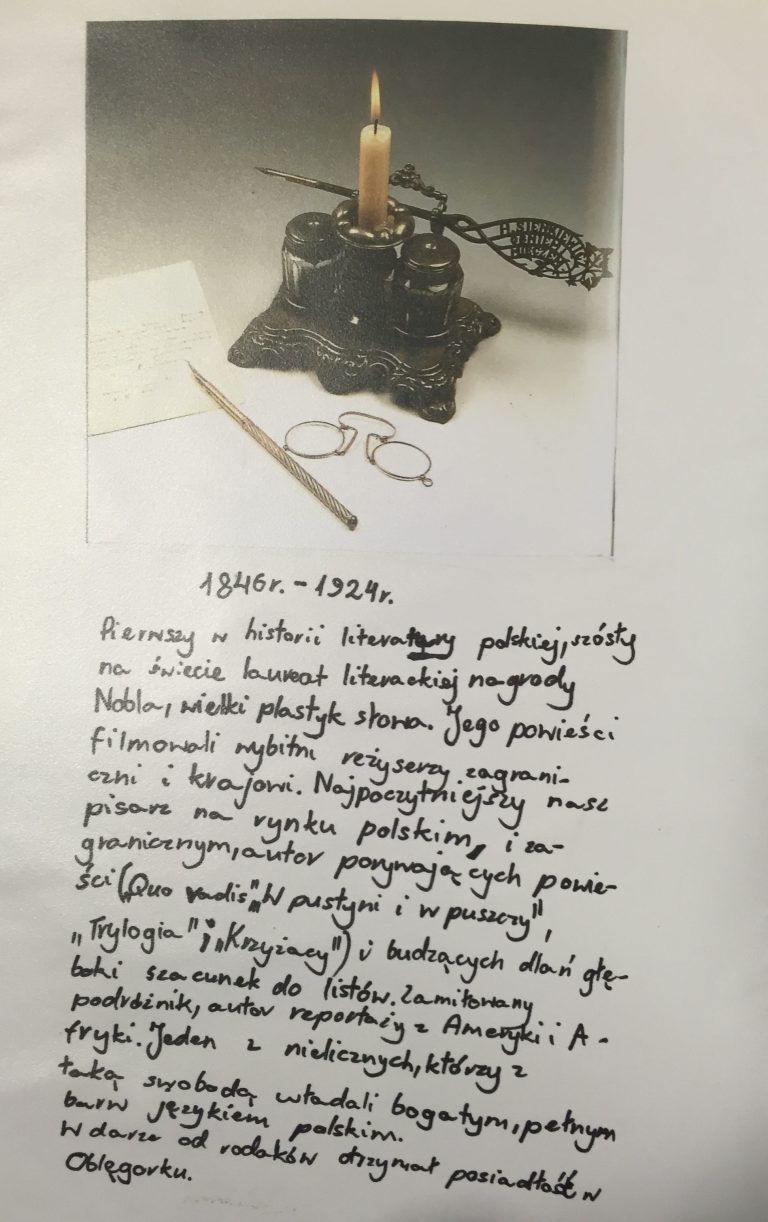 H. SIENKIEWICZ
1846r. - 1924r.
Pierwszy w historii literatury polskiej, szósty
na świecie laureat literackiej nagrody
Nobla, wielki plastyk słowa. Jego powieści
filmowali wybitni reżyserzy zagrani-
czni i krajowi. Najpoczytniejszy nasz
pisarz na rynku polskim, i za-
granicznym, autor porywających powie-
ści („Quo vadis" „W pustyni i w puszczy",
„Trylogia" i „Krzyżacy") i budzących dlań głę-
boki szacunek do listów. Zamiłowany
podróżnik, autor reportaży z Ameryki i A-
fryki. Jeden z nielicznych, którzy z
taką swobodą władali bogatym, pełnym
barw językiem polskim.
W darze od rodaków otrzymał posiadłość w
Oblęgorku.